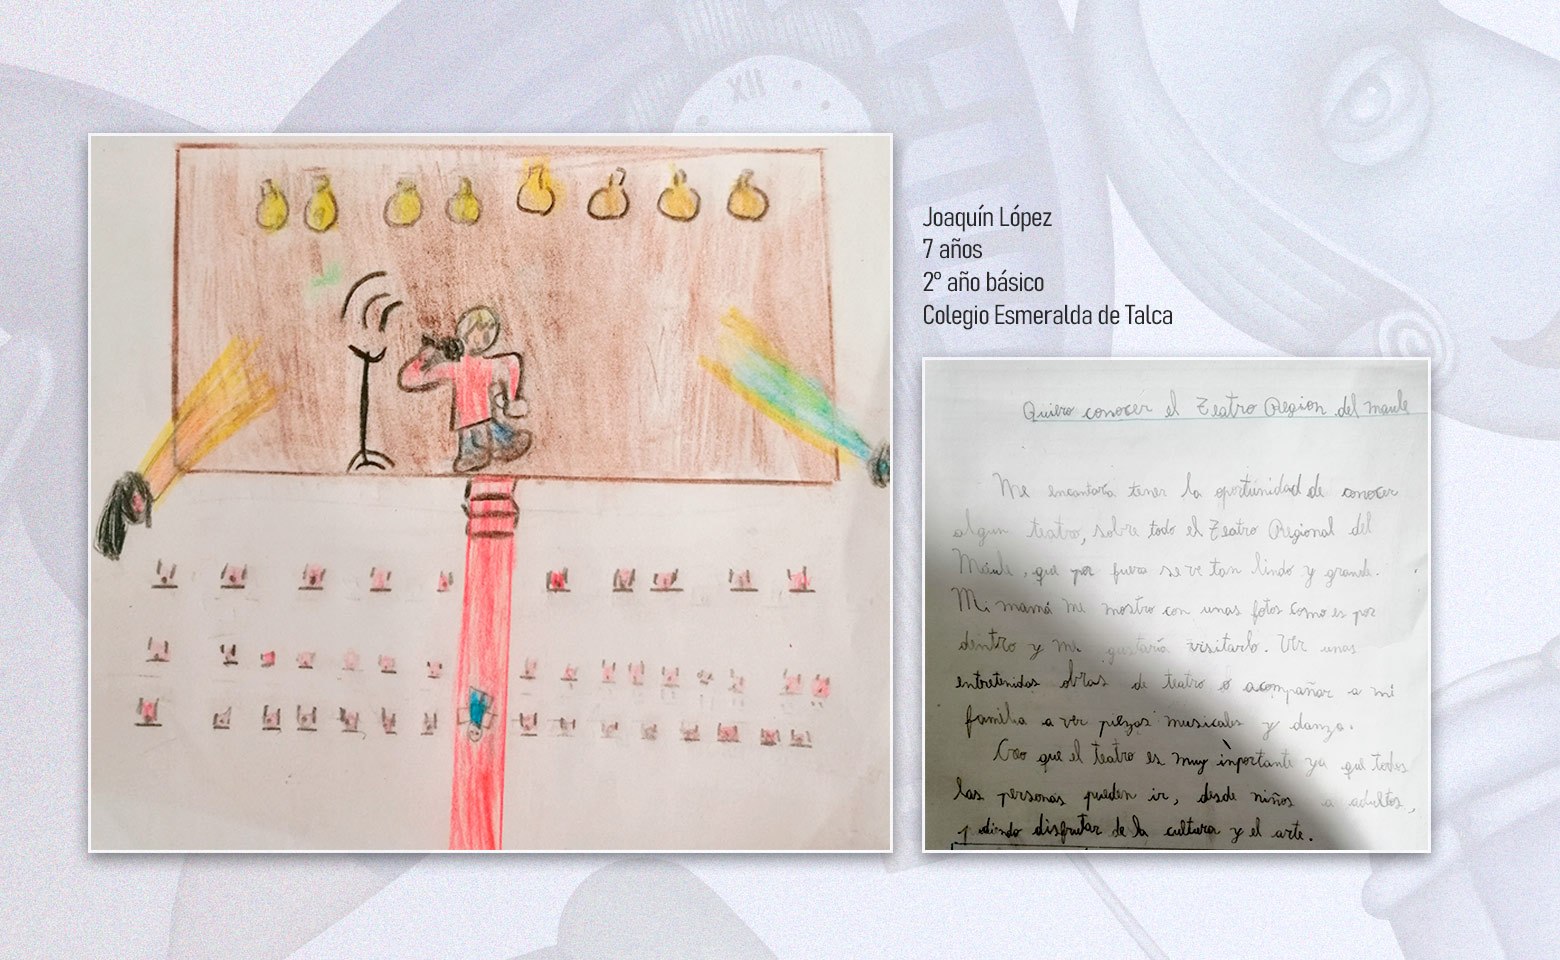 XII
Joaquín López
7 años
2º año básico
Colegio Esmeralda de Talca
Quiero conocer el Teatro Region del maule
Me encantaria tener la oportunidad de conocer
algun teatro, sobre todo el Teatro Regional del
Maule, que por fuera se ve tan lindo y grande.
Mi mamá me mostro con unas fotos como es por
dentro y me gustaría visitarlo. Ver unas
entretenidas obras de teatro o acompañar a mi
familia a ver piezas musicales y danza.
Creo que el teatro es muy inportante ya que todos
las personas pueden ir, desde niños a adultos,
pudiendo disfrutar de la cultura y el arte.